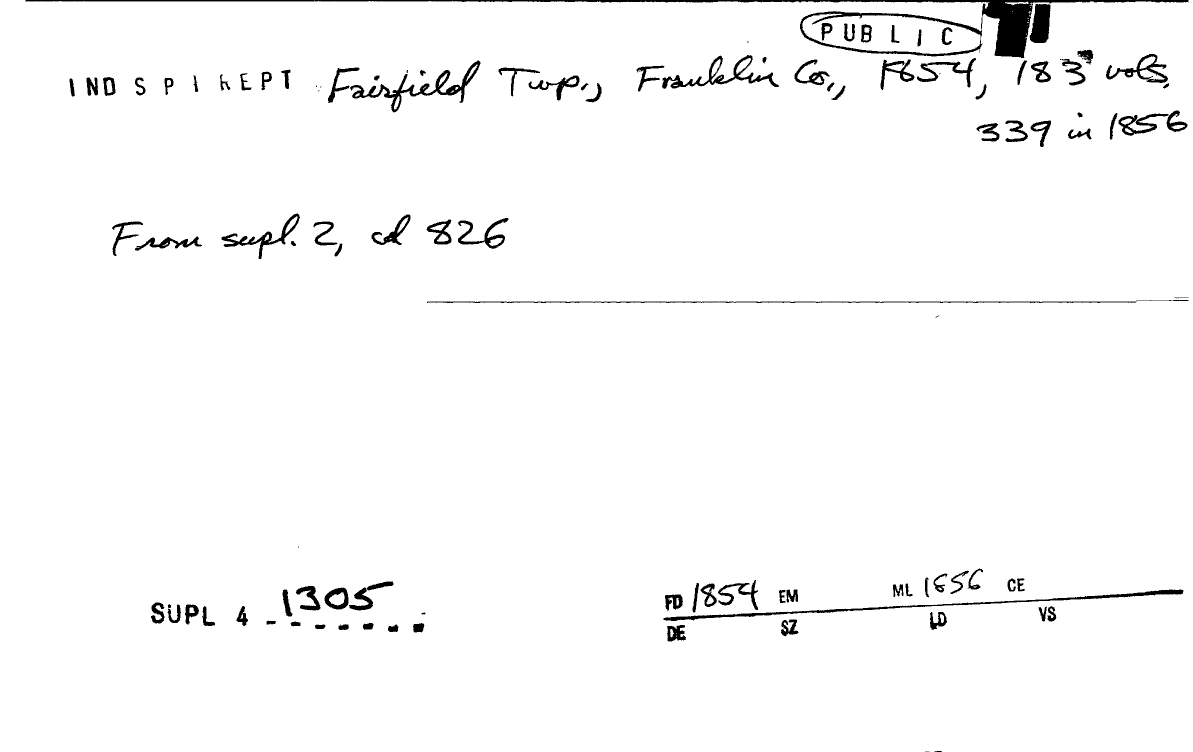 PUBLIC
IND SPI REPT Fairfield Twp., Franklin Co., 1854, 183 vols,
339 in 1856
From supl. 2, cd 826
SUPL 4 1305
FD 1854 EM ML 1856 CE
DE SZ LD VS